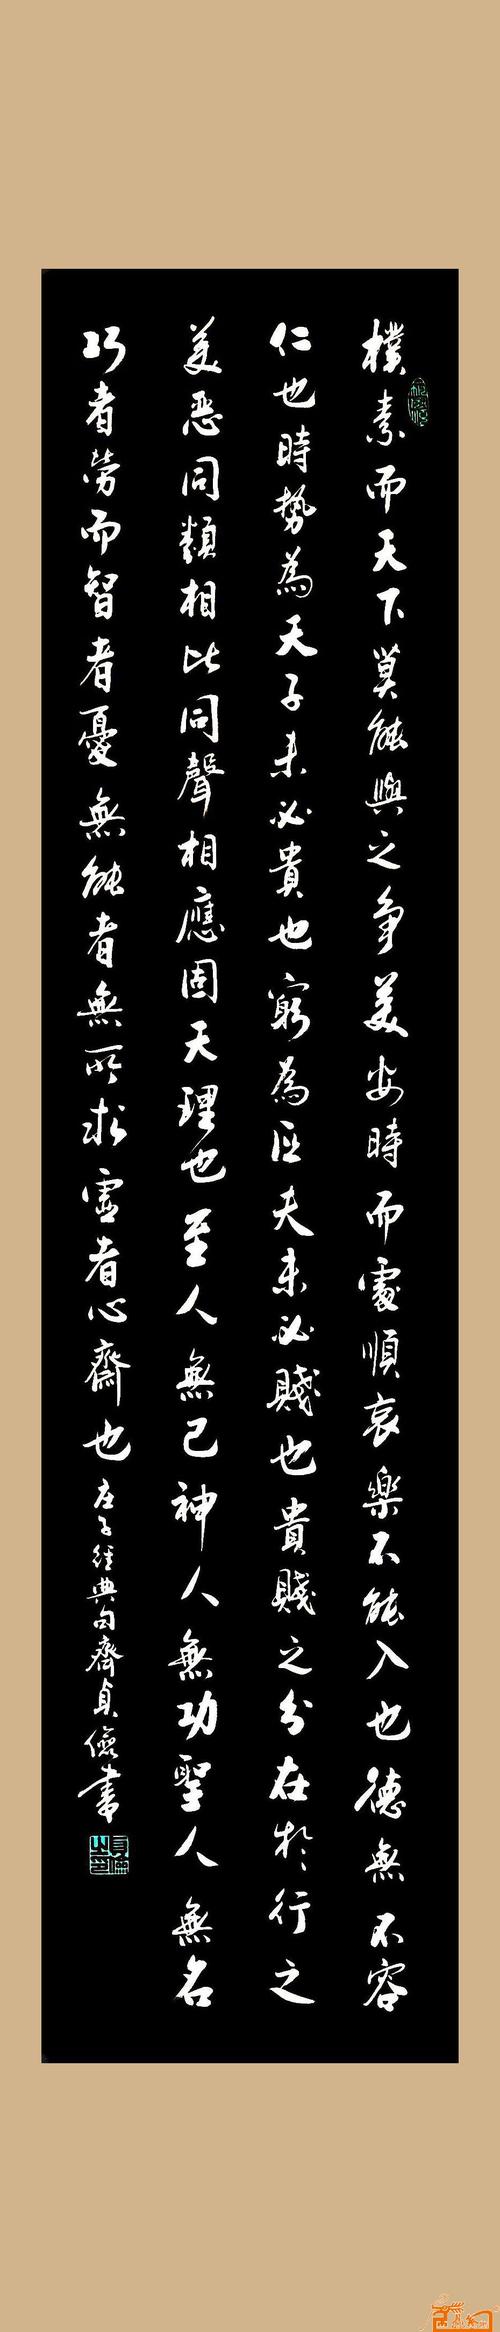 樸素而天下莫能與之争美安時而處順哀樂不能入也德無不容
仁也時勢為天子未必貴也窮為匹夫未必賤也貴賤之分在於行之
美惡同類相比同聲相應固天理也至人無己神人無功聖人無名
巧者勞而智者憂無能者無所求虛者心齋也
庄子經典句齊貞儉書